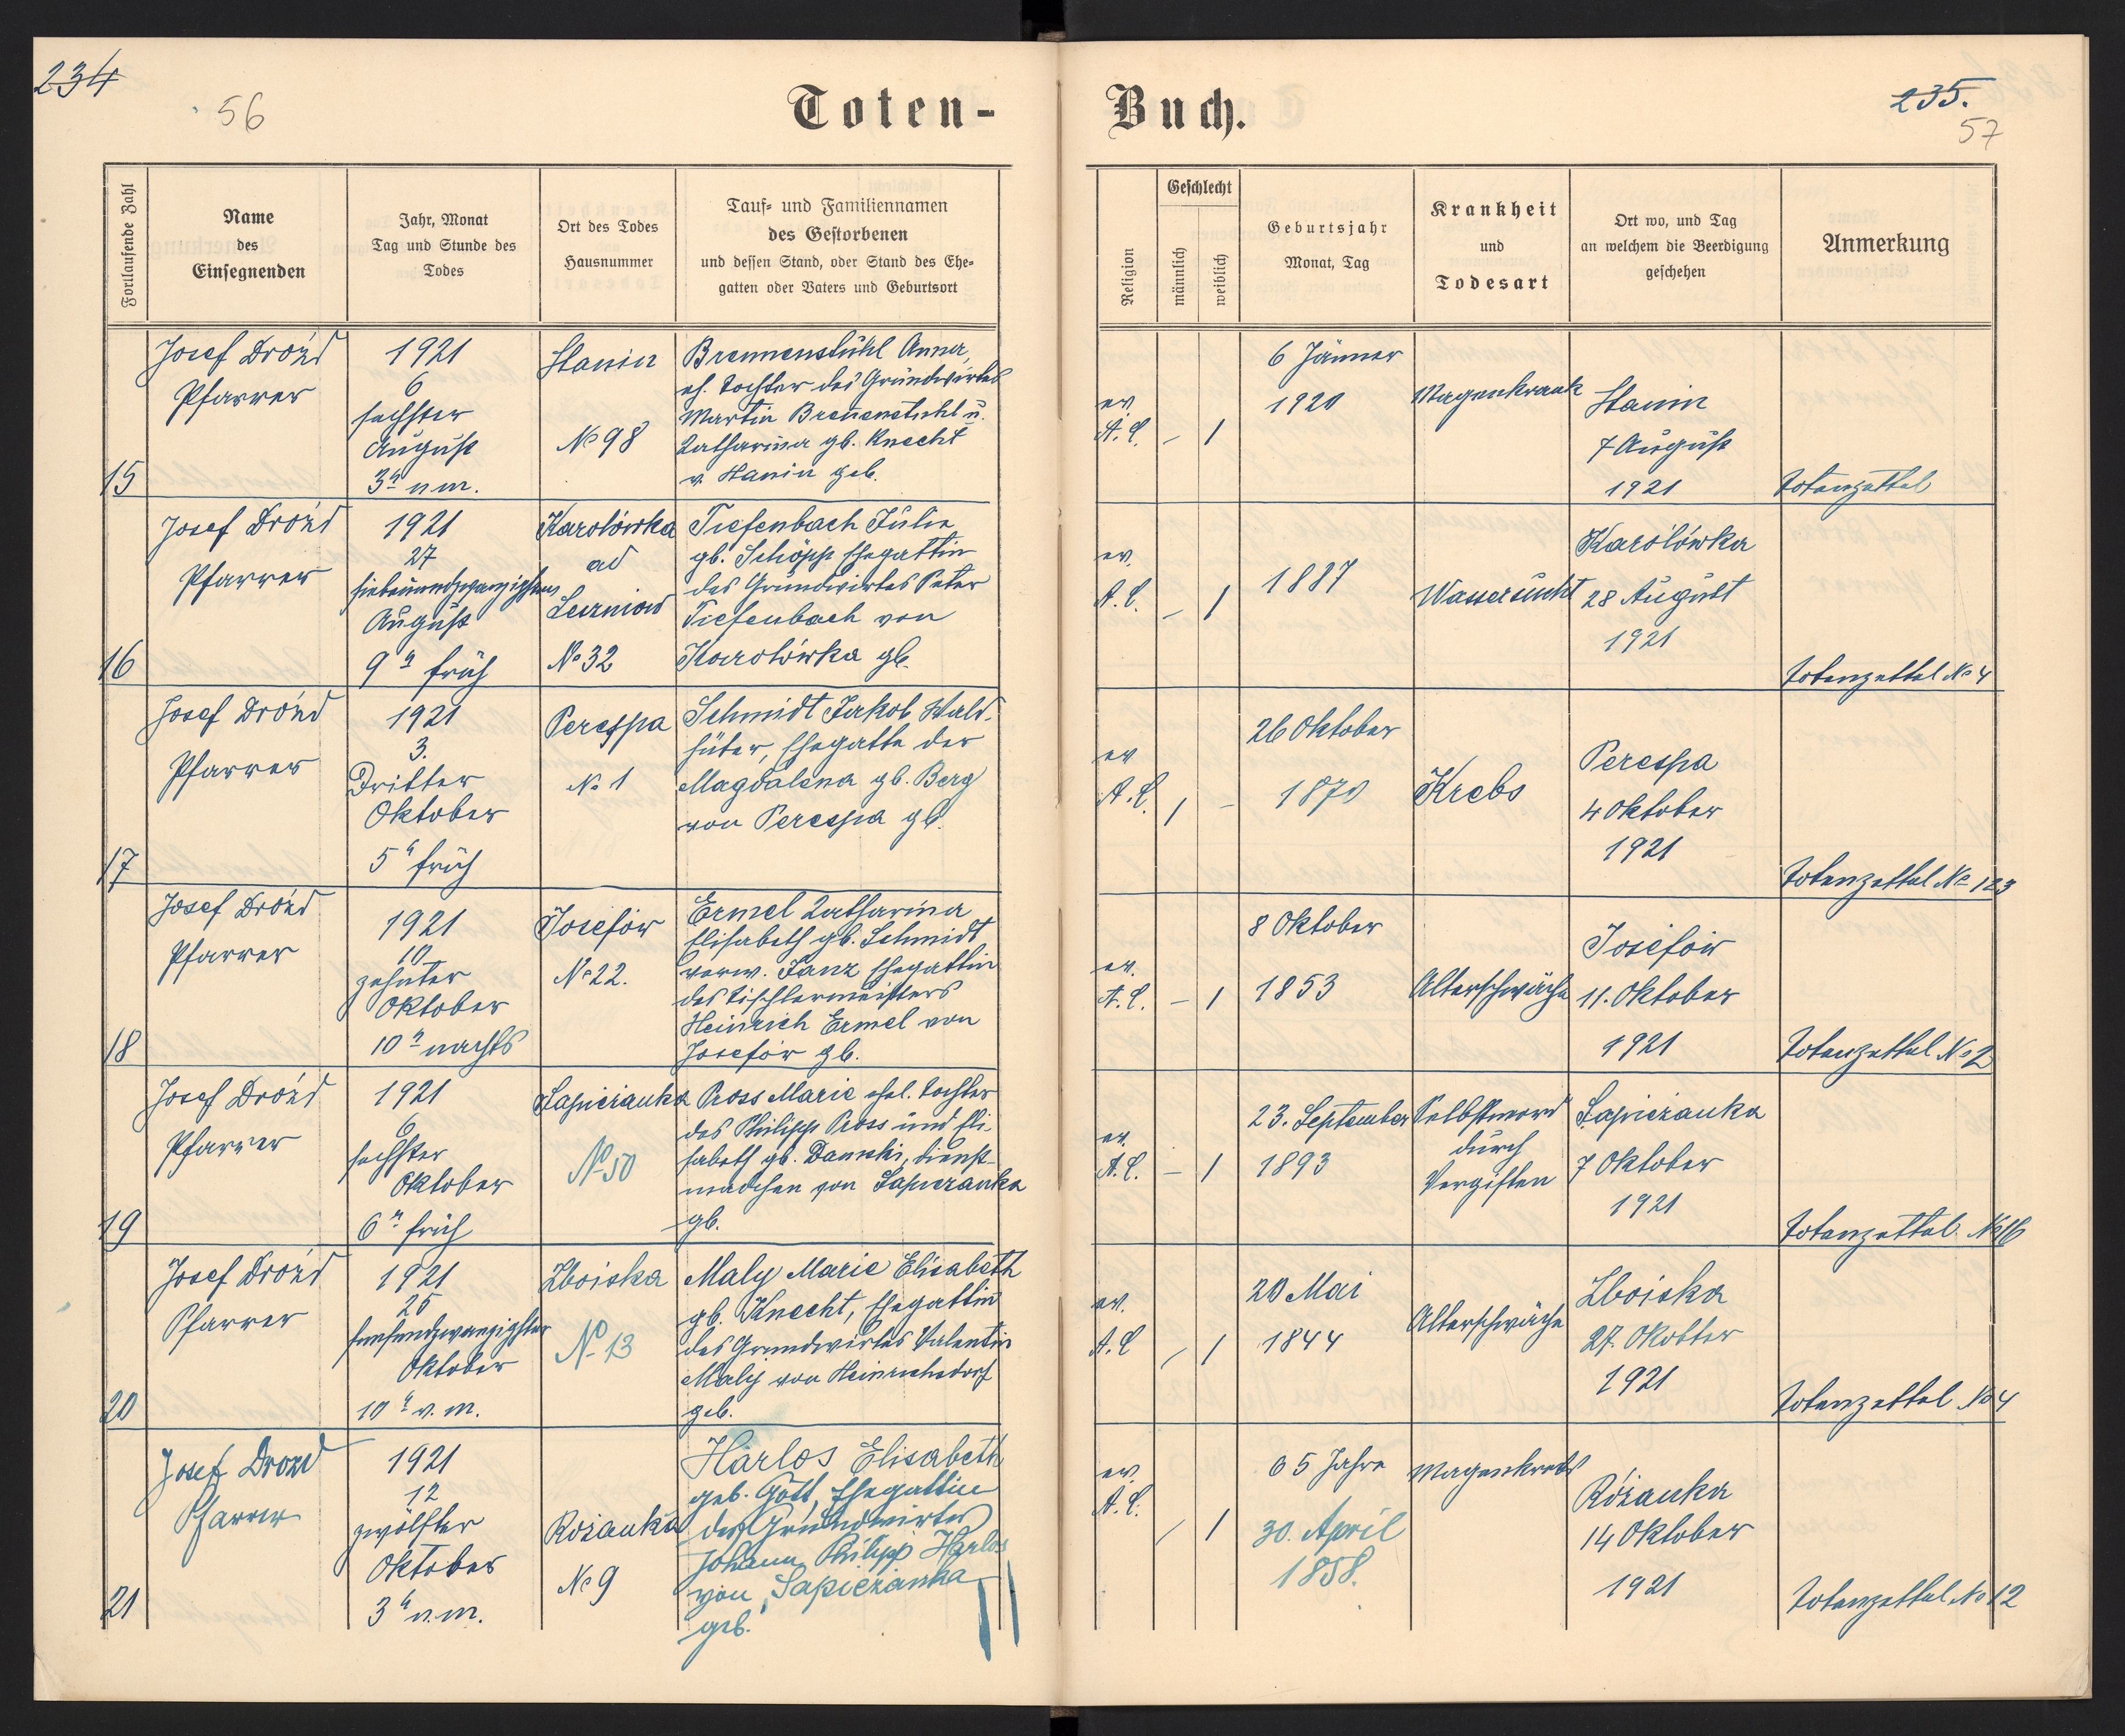 234
56
Toten-
Buch.
235.
57
Fortlaufende Zahl
Name
des
Einsegnenden
Jahr, Monat
Tag und Stunde des
Todes
Ort des Todes
Hausnummer
Tauf- und Familiennamen
des Gestorbenen
und dessen Stand, oder Stand des Ehe-
gatten oder Vaters und Geburtsort
Religion
Geschlecht
männlich
weiblich
Geburtsjahr
Monat, Tag
Krankheit
und
Todesart
Ort wo, und Tag
an welchem die Beerdigung
geschehen
Anmerkung
15
Josef Drożd
Pfarrer
1921
6
sechster
August
3 n.m.
Stanin
No 98
Brennenstuhl Anna,
eh. Tochter des Grundwirtes
Martin Brennenstuhl u.
Katharina gb. Knecht
v. Stanin geb.
ev.
A.C.
– 1
6 Jänner
1920
Magenkrank
Stanin
7 August
1921
Totenzettel
16
Josef Drożd
Pfarrer
1921
27
siebenundzwanzigsten
August
9 früh
Karolówka
ad
No 32
Tiefenbach Julia
gb. Schöpp Ehegattin
des Grundwirtes Peter
Tiefenbach von
Karolówka gb.
ev.
A.C.
– 1
1887
Wassersucht
Karolówka
28 August
1921
Totenzettel No 4
17
Josef Drożd
Pfarrer
1921
3.
Dritter
Oktober
5 früh
Perespa
No 1
Schmidt Jakob Wald-
hüter, Ehegatte der
Magdalena gb. Berg
von Perespa gb.
ev
A.C.
1 –
26 Oktober
1870
Krebs
Perespa
4 Oktober
1921
Totenzettel No 123
18
Josef Drożd
Pfarrer
1921
10
zehnter
Oktober
10 nachts
Josefów
No 22.
Ermel Katharina
Elisabeth gb. Schmidt
verw. Janz Ehegattin
des Tischlermeisters
Heinrich Ermel von
Josefów gb.
ev.
A.C.
– 1
8 Oktober
1853
Alterschwäche
Josefów
11. Oktober
1921
Totenzettel No 2
19
Josef Drożd
Pfarrer
1921
6
sechster
Oktober
6 früh
Sapieżanka
No 50
Pross Marie ehel. Tochter
des Philipp Pross und Eli-
sabeth gb. Danski, Dienst-
mädchen von Sapieżanka
gb.
ev.
A.C.
– 1
23. September
1893
Selbstmord
durch
Vergiften
Sapieżanka
7 Oktober
1921
Totenzettel No 16
20
Josef Drożd
Pfarrer
1921
25
funfundzwanzigster
Oktober
10 v.m.
Zboiska
No 13
Maly Marie Elisabeth
gb. Knecht, Ehegattin
des Grundwirtes Valentin
Maly von Heinrichsdorf
geb.
ev.
A.C
– 1
20 Mai
1844
Alterschwäche
Zboiska
27. Okobter
1921
Totenzettel No 4
21
Josef Drozd
Pfarrer
1921
12
zwölfter
Oktober
3 n.m.
Rożanka
No 9
Harlos Elisabeth
geb. Gott, Ehegattin
des Grundwirtes
Johann Philipp Harlos
von Sapieżanka
geb.
ev.
A.C.
– 1
65 Jahre
30. April
1858.
Magenkrebs
Różanka
14 Oktober
1921
Totenzettel No 12